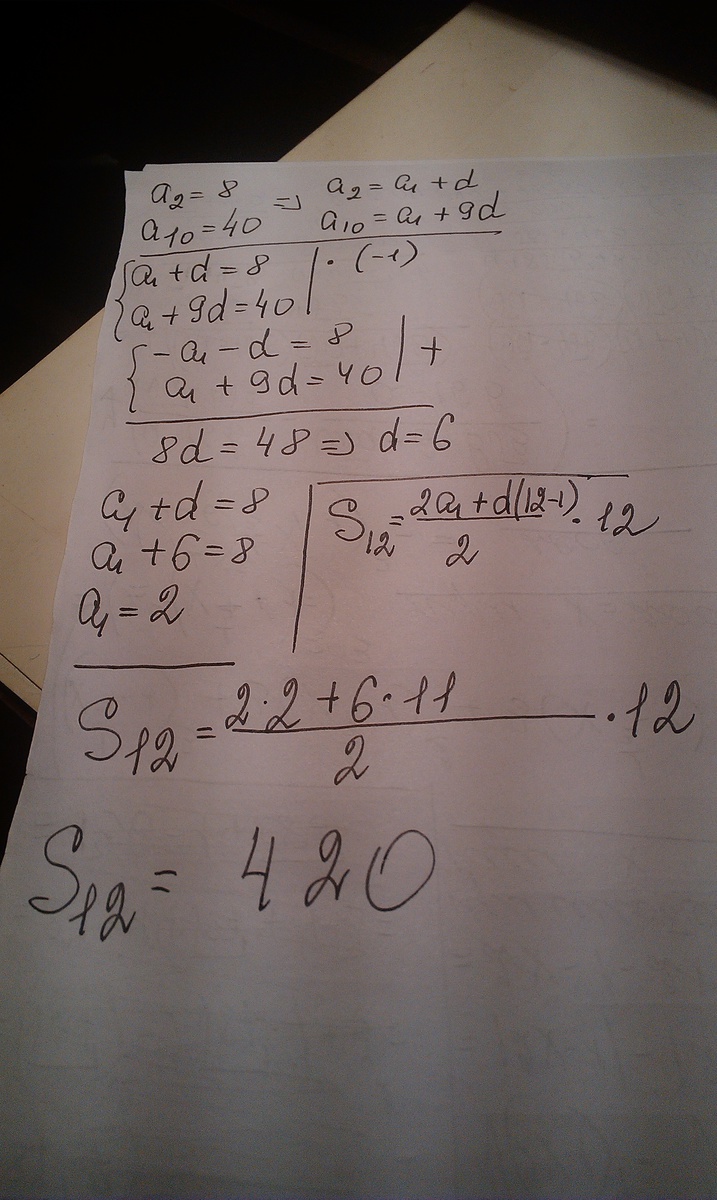 a₂ = 8 => a₂ = a₁ + d
a₁₀ = 40 a₁₀ = a₁ + 9d
{ a₁ + d = 8 | · (-1)
a₁ + 9d = 40 |
{ - a₁ - d = 8 | +
a₁ + 9d = 40 |
8d = 48 => d = 6
a₁ + d = 8
a₁ + 6 = 8
a₁ = 2
S₁₂ = (2a₁ + d(12-1))/2 · 12
S₁₂ = (2·2 + 6·11)/2 · 12
S₁₂ = 420